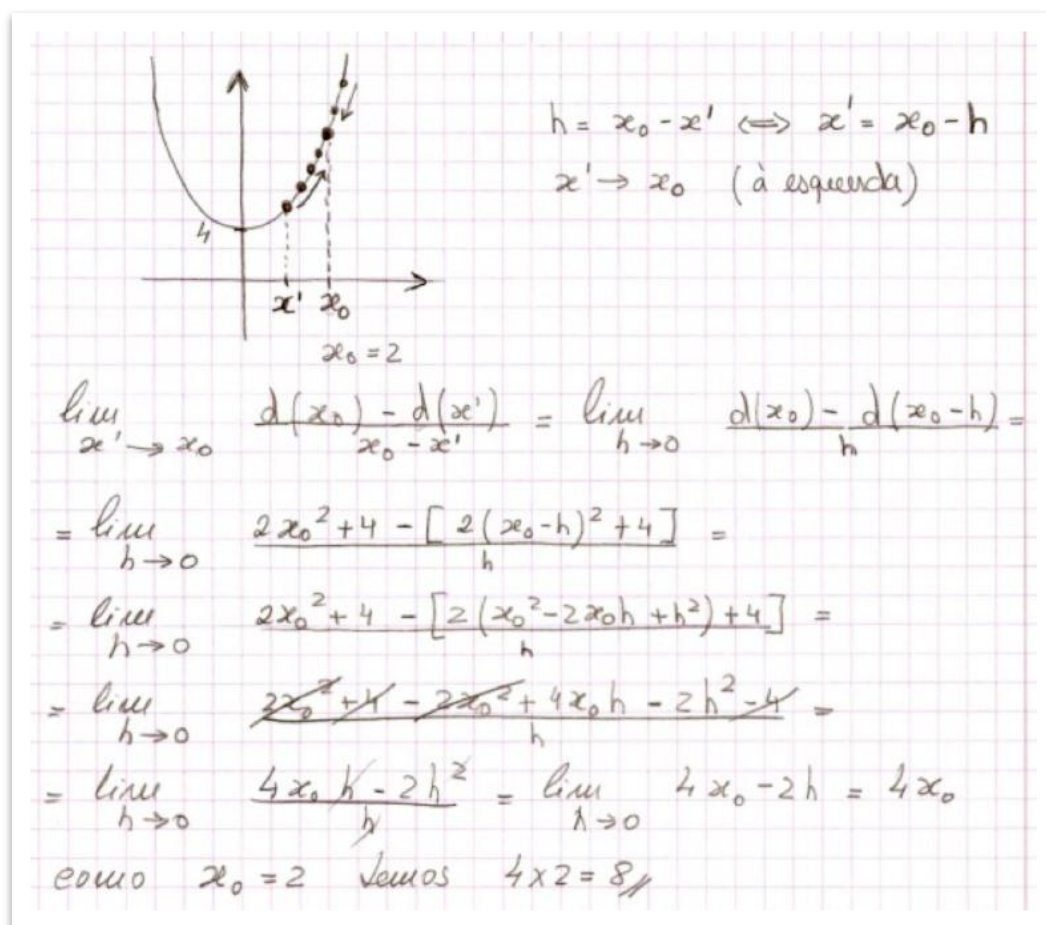 h = x₀ - x' ⇔ x' = x₀ - h
x' → x₀ (à esquerda)
4
x' x₀
x₀ = 2
lim x' → x₀ d(x₀) - d(x') / x₀ - x' = lim h → 0 d(x₀) - d(x₀ - h) / h =
= lim h → 0 2x₀² + 4 - [2(x₀ - h)² + 4] / h =
= lim h → 0 2x₀² + 4 - [2(x₀² - 2x₀h + h²) + 4] / h =
= lim h → 0 2x₀² + 4 - 2x₀² + 4x₀h - 2h² - 4 / h =
= lim h → 0 4x₀h - 2h² / h = lim h → 0 4x₀ - 2h = 4x₀
como x₀ = 2 temos 4 × 2 = 8 //